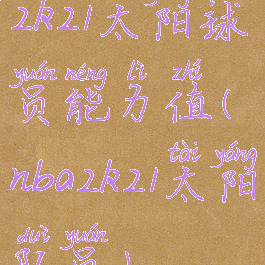 2k21太阳球
yuán néng lì zhí
员能力值(
tài yáng
nba2k21太阳
duì yuán
队员)